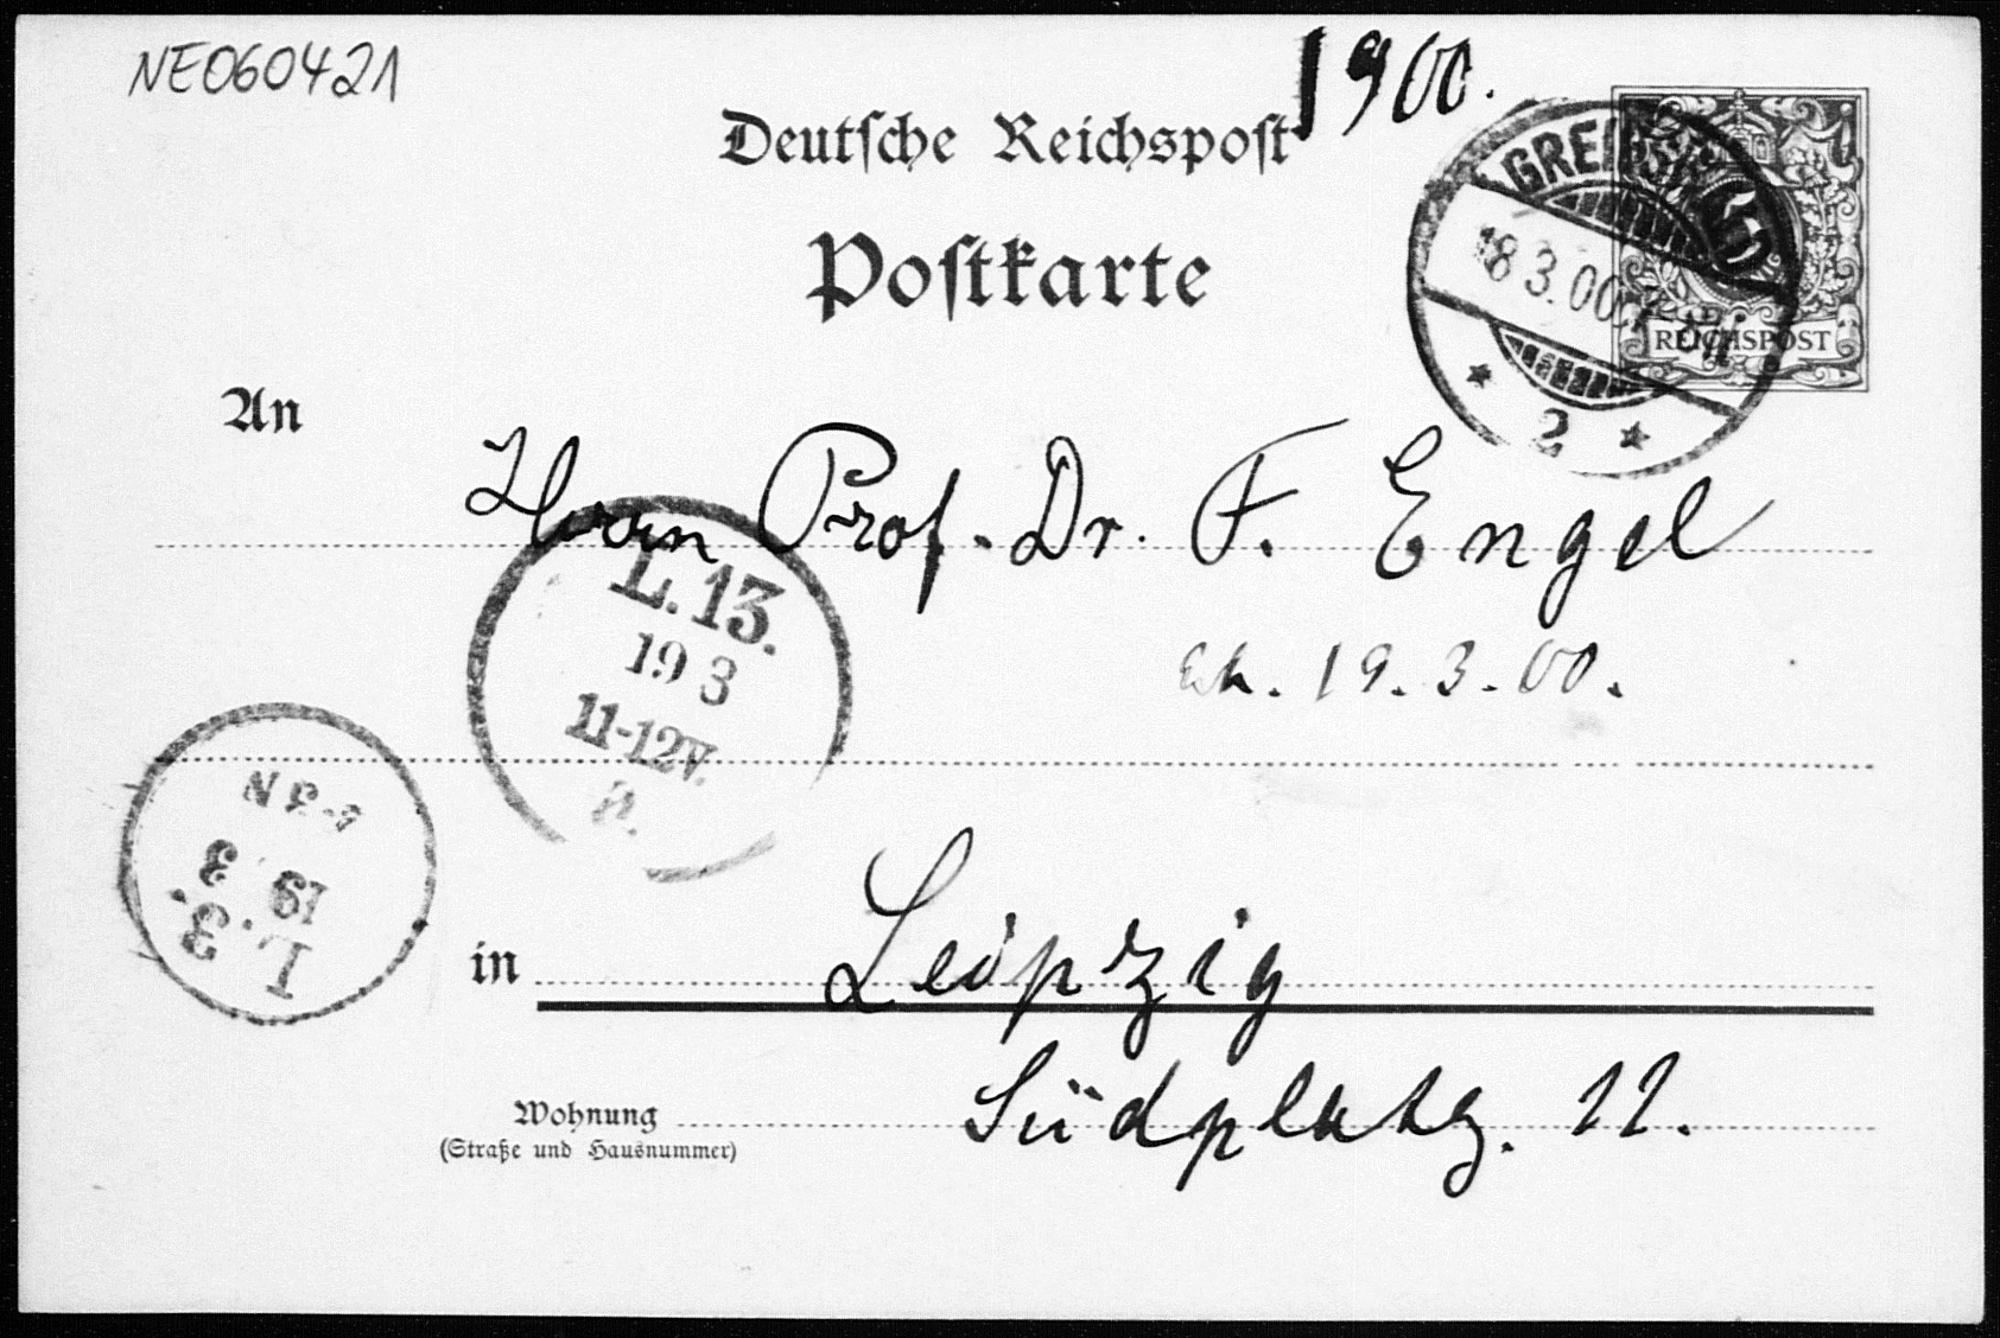 NE060421
1900.
Deutsche Reichspost
Postkarte
GREIFSWALD
18 3.00
2
REICHSPOST
An
Herrn Prof. Dr. F. Engel
L.13.
19 3
11-12V.
Eh. 19.3.00.
L.3.
19 3
N
in Leipzig
Wohnung Südplatz. 11.
(Straße und Hausnummer)